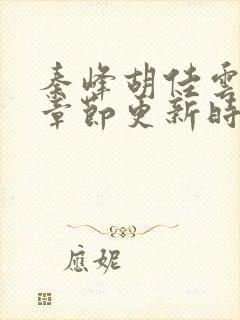 秦峰胡佳雲
章節更新時
應妮